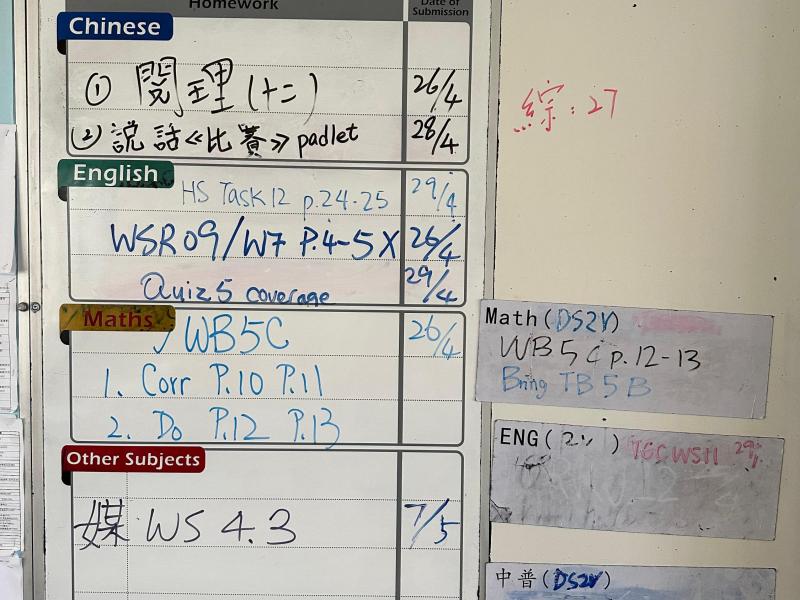 Homework
Date of Submission
Chinese
① 閱理(十二) 26/4
② 説話《比賽》padlet 28/4
English
HS Task 12 p.24-25 29/4
WSR09/W7 P.4-5 X 26/4
Quiz 5 coverage 29/4
Maths
WB5C 26/4
1. Corr P.10 P.11
2. Do P.12 P.13
Other Subjects
媒 WS 4.3 7/5
綜: 27
Math(DS2Y)
WB 5C p.12-13
Bring TB 5B
ENG(2Y) TGC WS11 29/
中普(DS2Y)